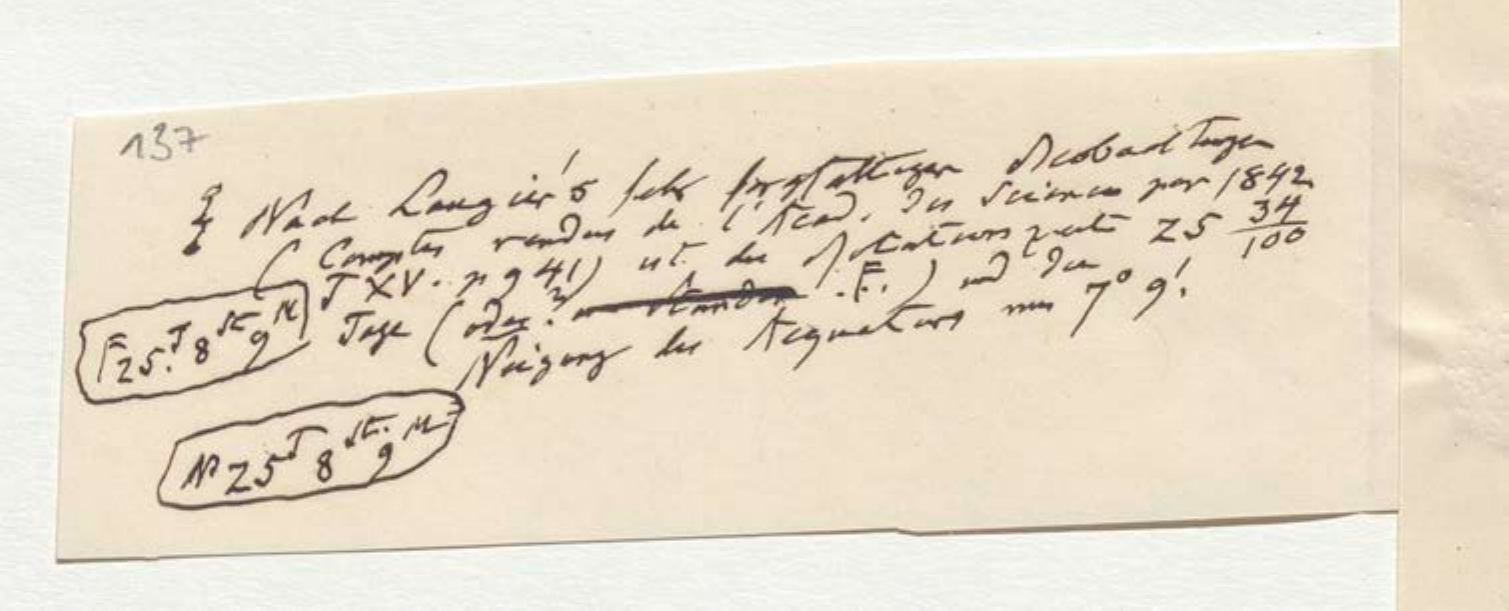 137
Nach Laugier's sehr sorgfältigen Beobachtungen
( Comptes rendus de l'Acad. des Sciences pour 1842
T XV. p 941) ist die Rotationszeit 25 34/100
Tage (oder? F.) und die
Neigung des Aequators nur 7° 9'.
F 25.T 8 St 9 M
25 T 8 St. 9 M